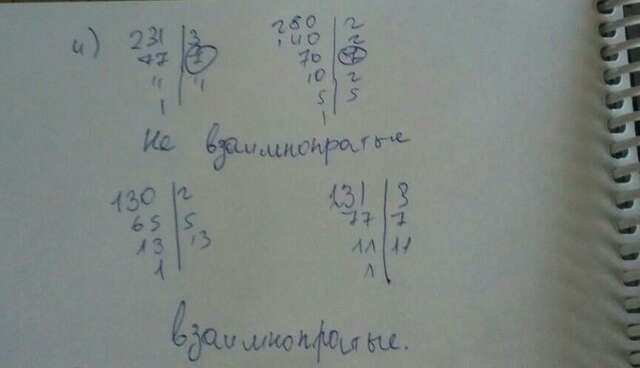 4) 231 | 3 280 | 2
77 | 7 140 | 2
11 | 11 70 | 7
1 10 | 2
5 | 5
1
Не взаимнопратые
130 | 2 231 | 3
65 | 5 77 | 7
13 | 13 11 | 11
1 1
взаимнопратые.